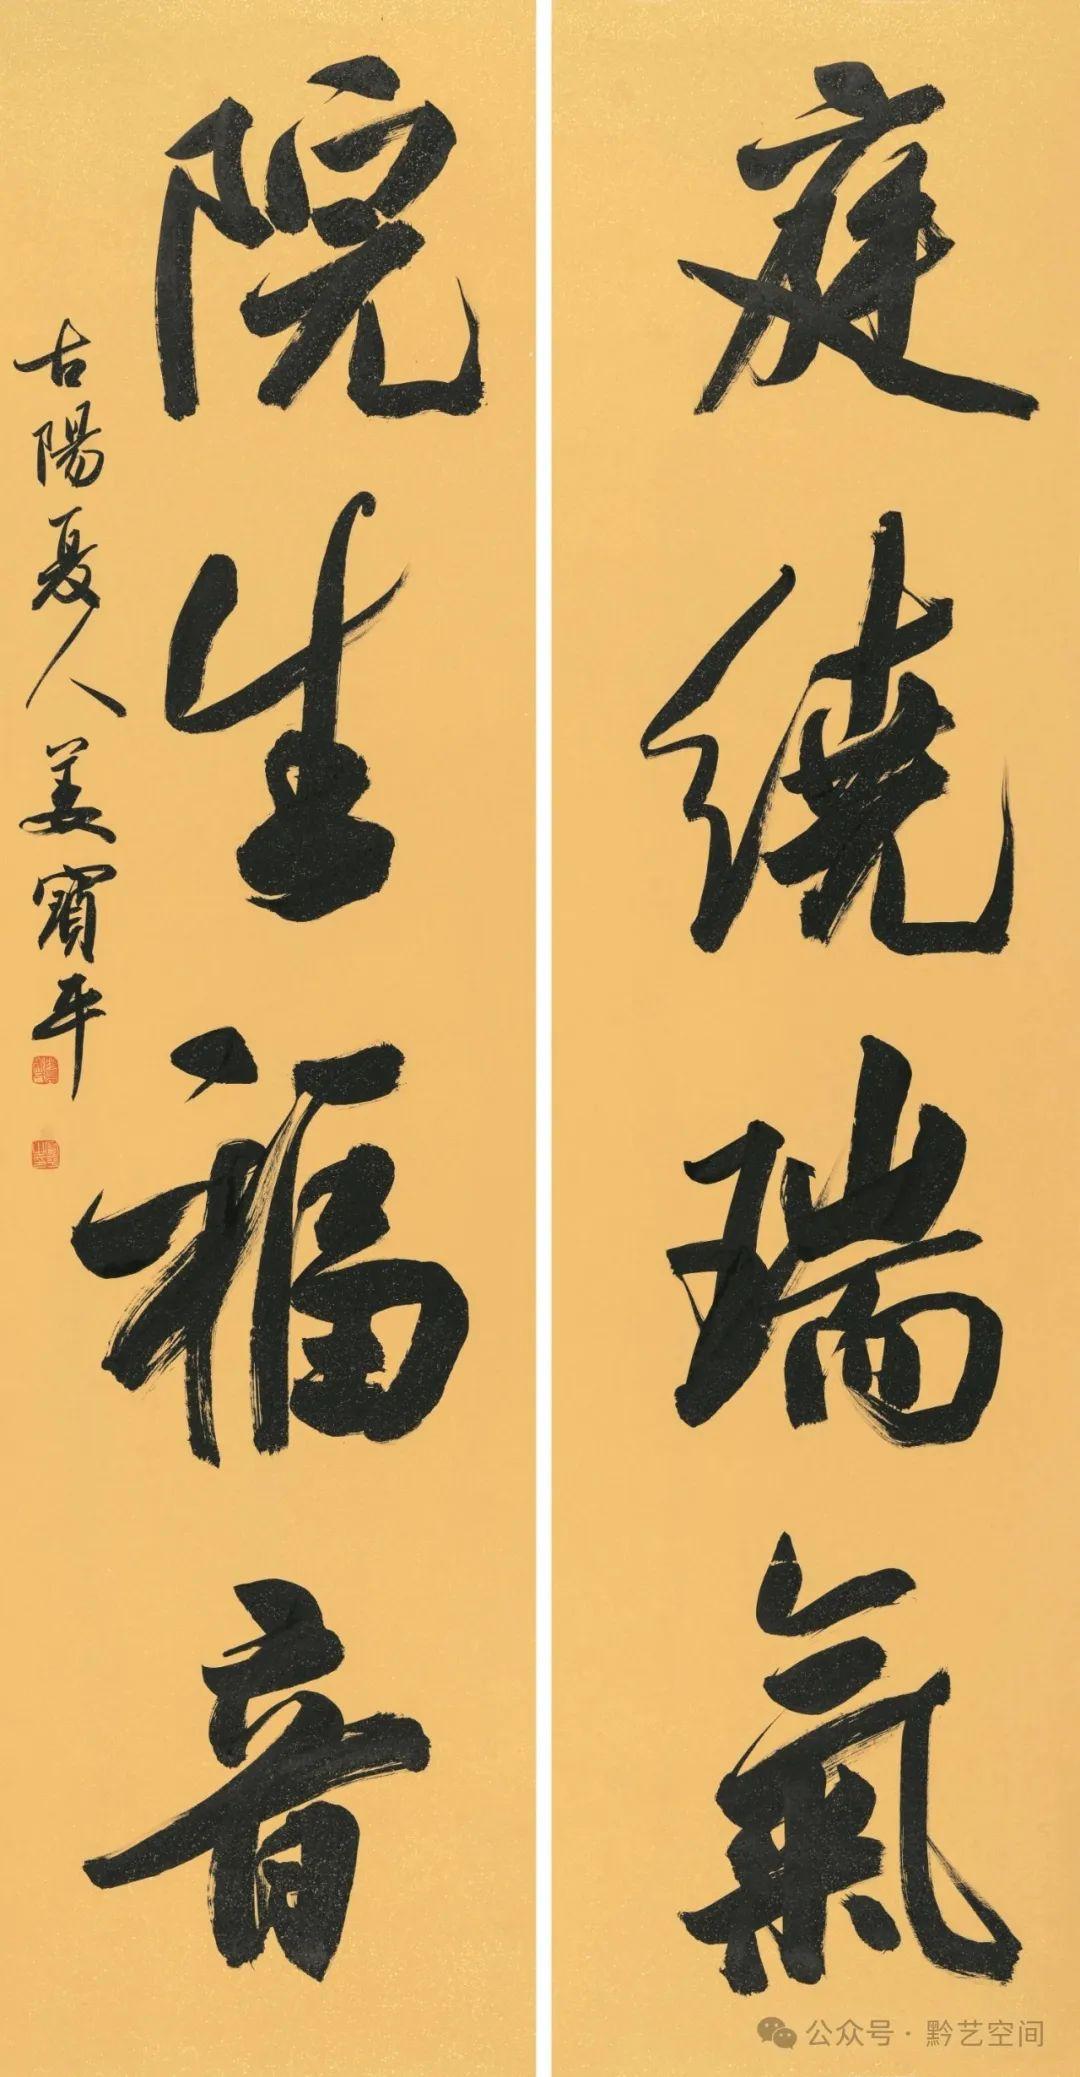 庭繞瑞氣
院生福音
古陽夏人姜寶平
公众号·黔艺空间